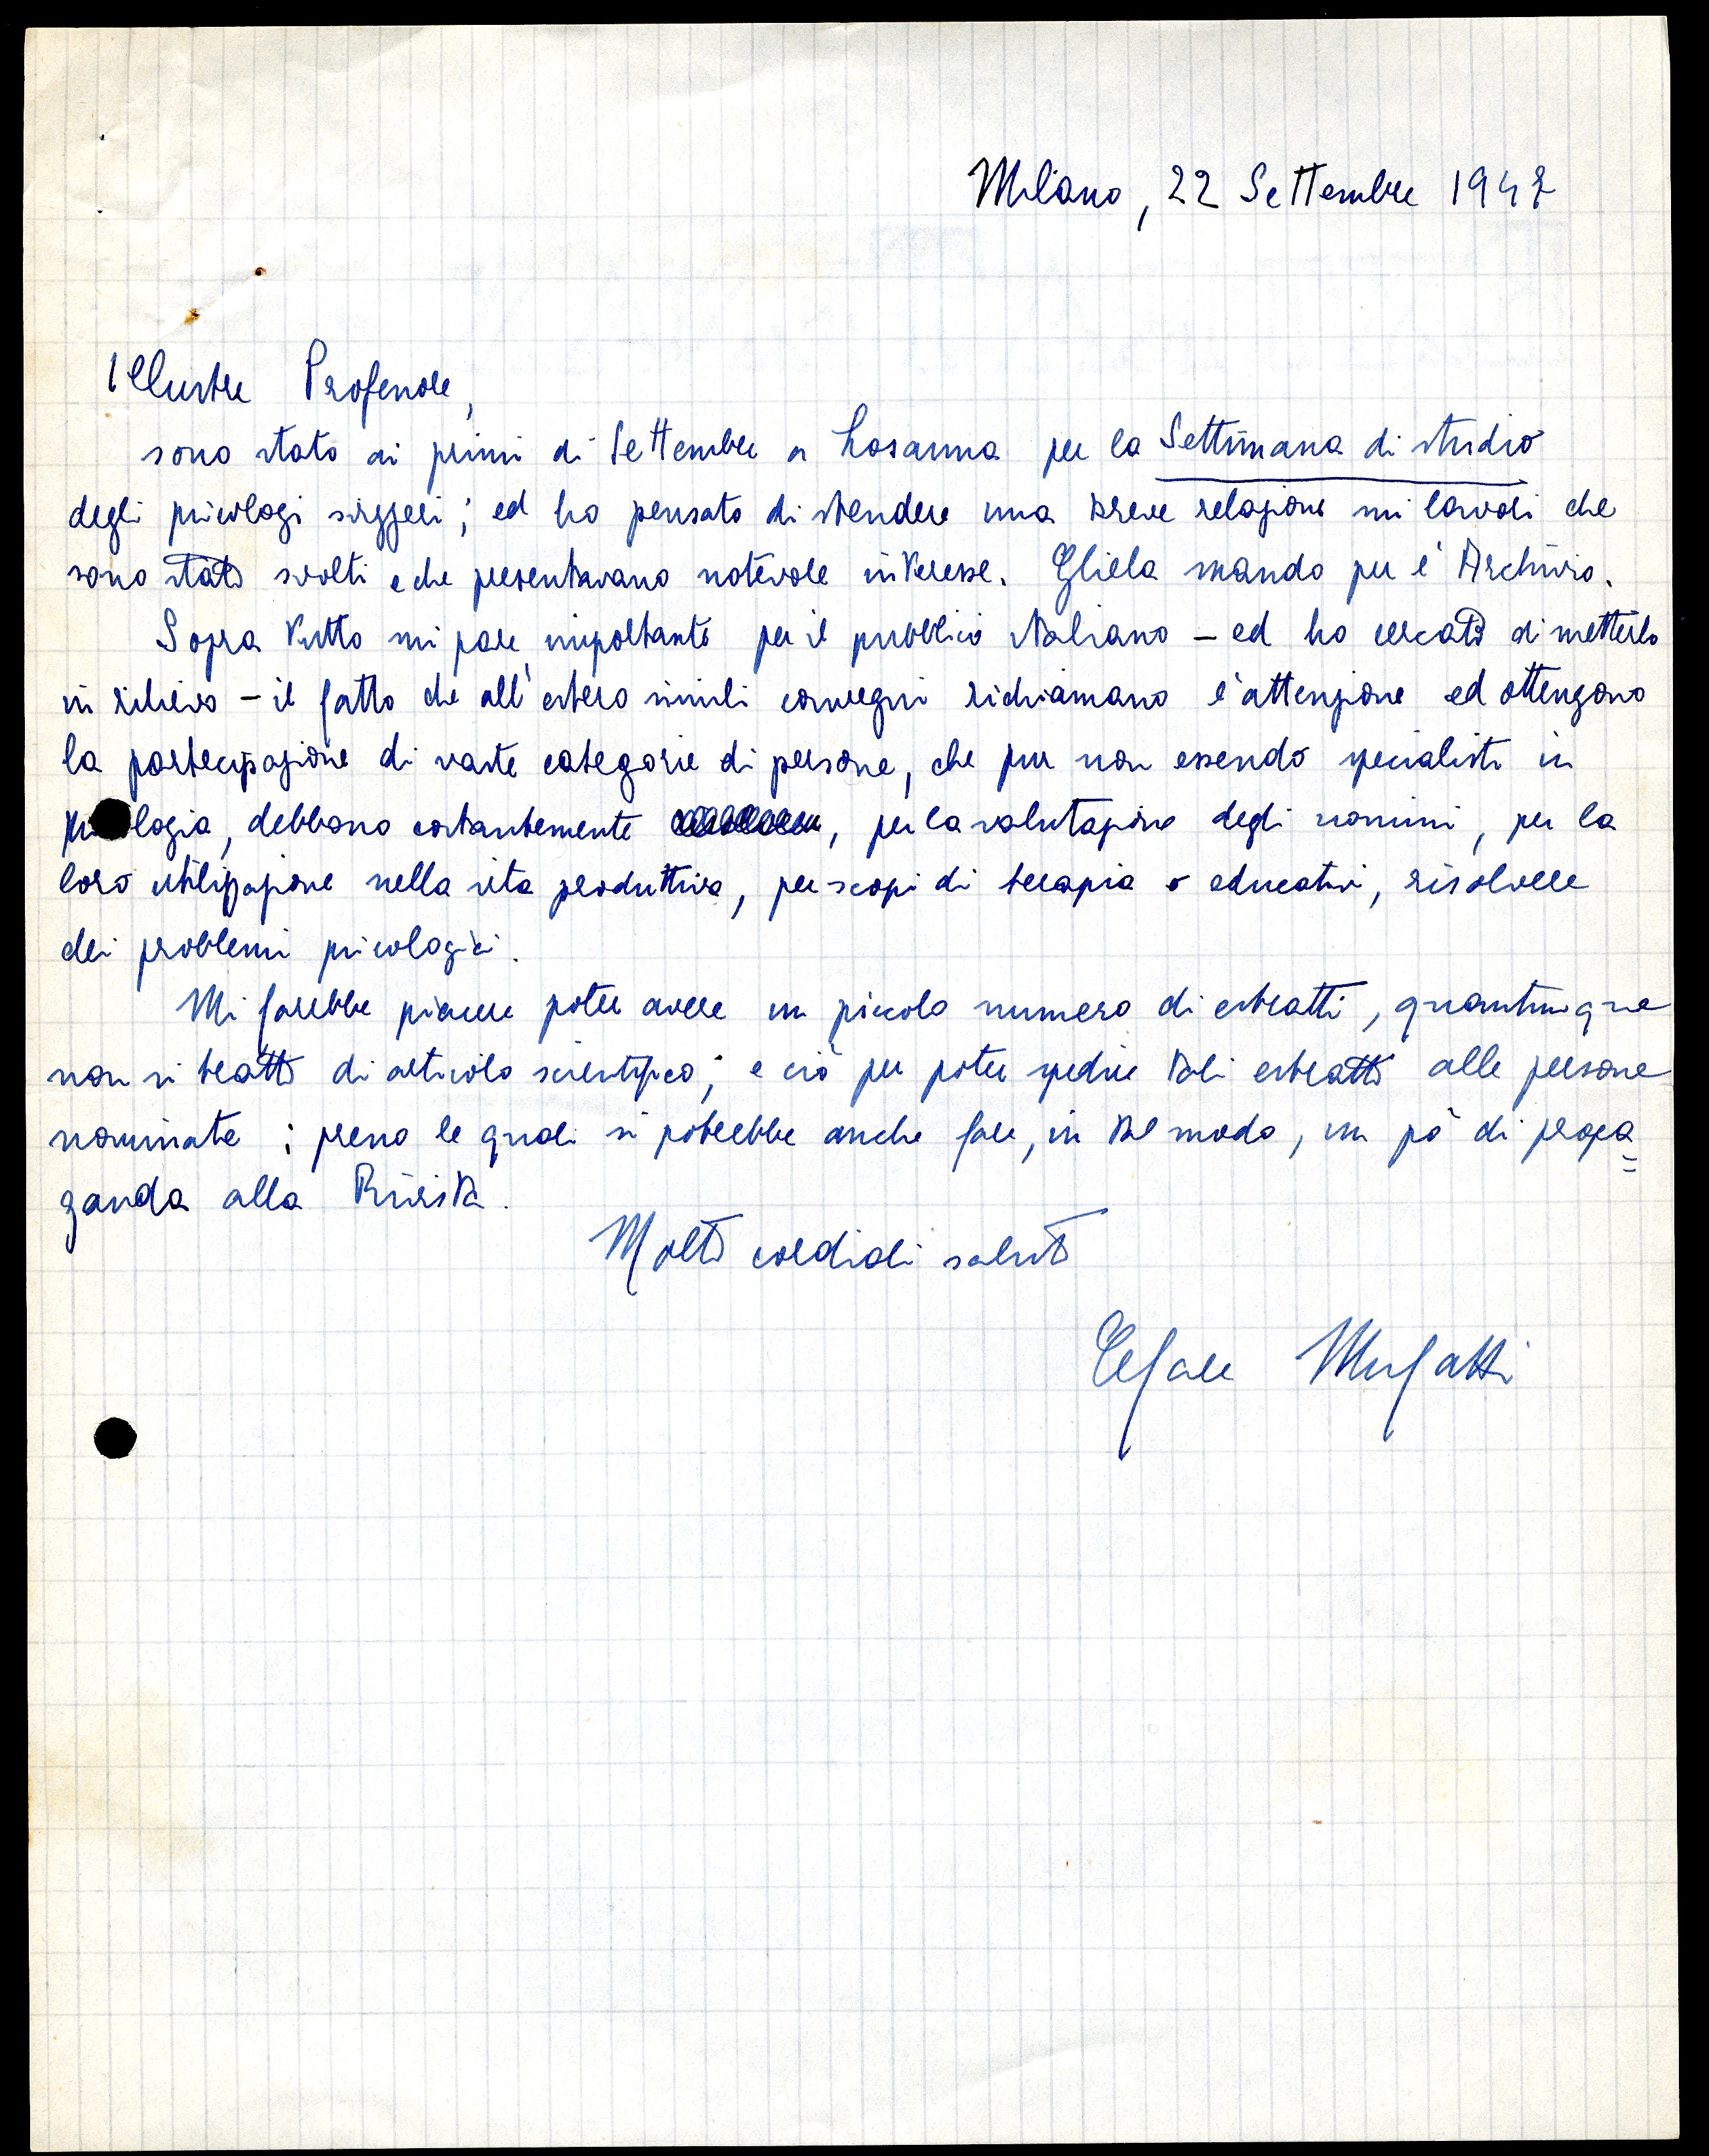 Milano, 22 Settembre 1947
Illustre Professore,
sono stato ai primi di Settembre a Losanna per la Settimana di studio
degli psicologi svizzeri; ed ho pensato di stendere una breve relazione sui lavori che
sono stati svolti e che presentavano notevole interesse. Gliela mando per l'Archivio.
Sopra tutto mi pare importante per il pubblico italiano - ed ho cercato di metterlo
in rilievo - il fatto che all'estero simili convegni richiamano l'attenzione ed ottengono
la partecipazione di vaste categorie di persone, che pur non essendo specialisti in
psicologia, debbono costantemente , per la valutazione degli uomini, per la
loro utilizzazione nella vita produttiva, per scopi di terapia o educativi, risolvere
dei problemi psicologici.
Mi farebbe piacere poter avere un piccolo numero di estratti, quantunque
non si tratti di articolo scientifico; e ciò per poter spedire tali estratti alle persone
nominate; presso le quali si potrebbe anche fare, in tal modo, un pò di propa=
ganda alla Rivista.
Molti cordiali saluti
Cesare Musatti